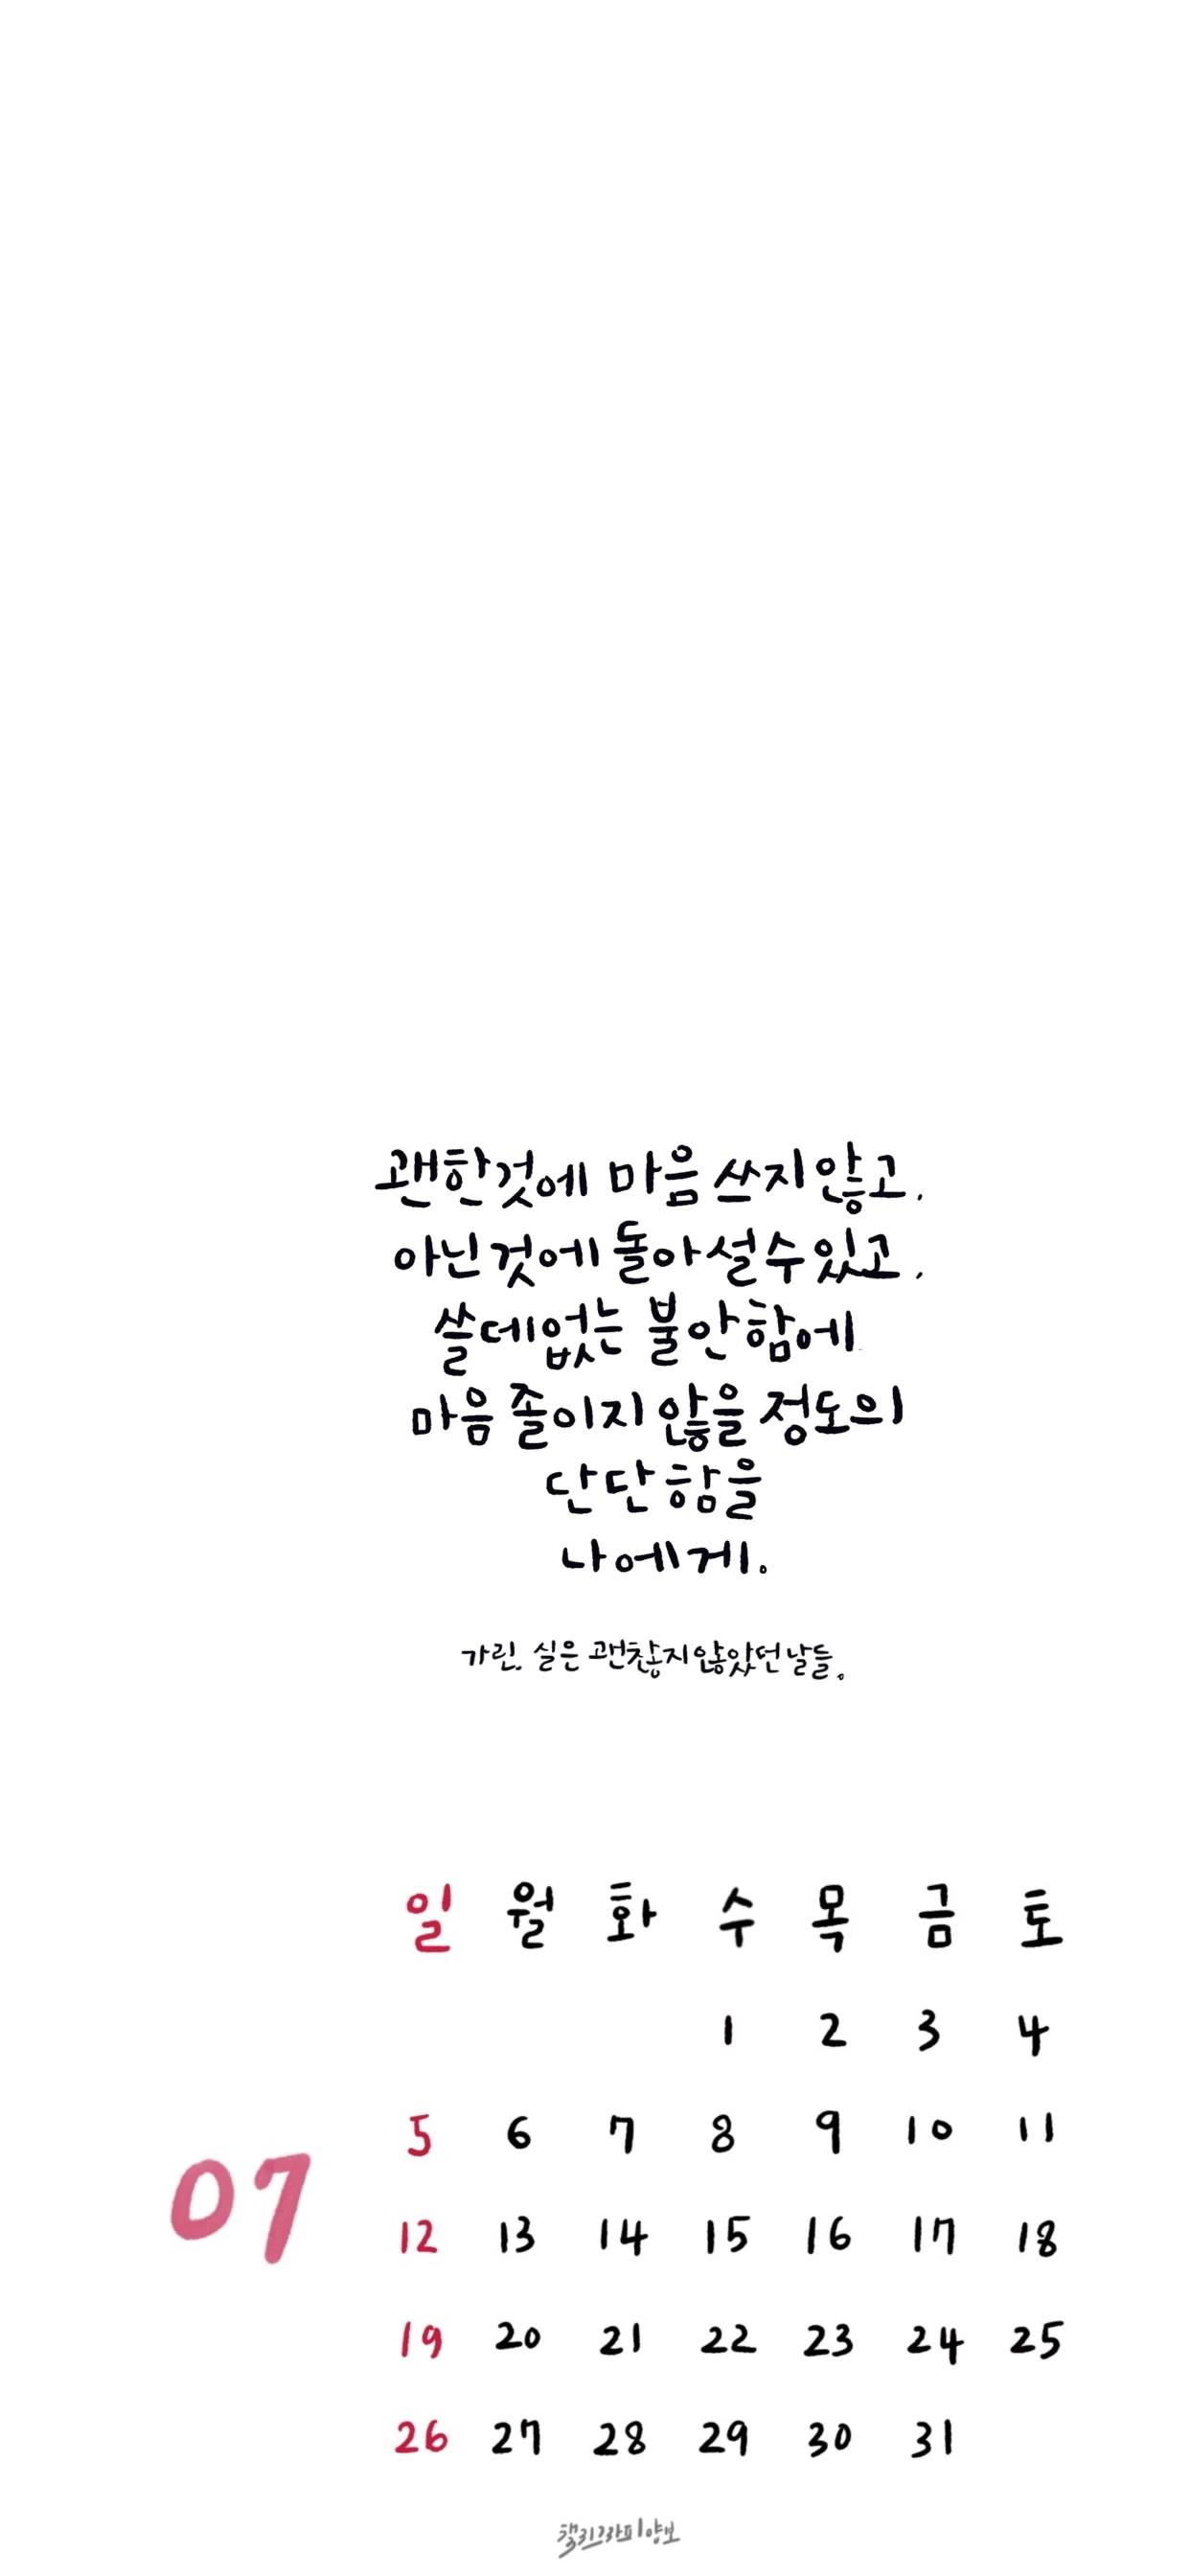 괜한것에 마음 쓰지않고,
아닌것에 돌아설수있고,
쓸데없는 불안함에
마음 졸이지 않을 정도의
단단함을
나에게.
가린. 실은 괜찮지않았던날들.
일 월 화 수 목 금 토
1 2 3 4
5 6 7 8 9 10 11
07
12 13 14 15 16 17 18
19 20 21 22 23 24 25
26 27 28 29 30 31
캘리그라피양보